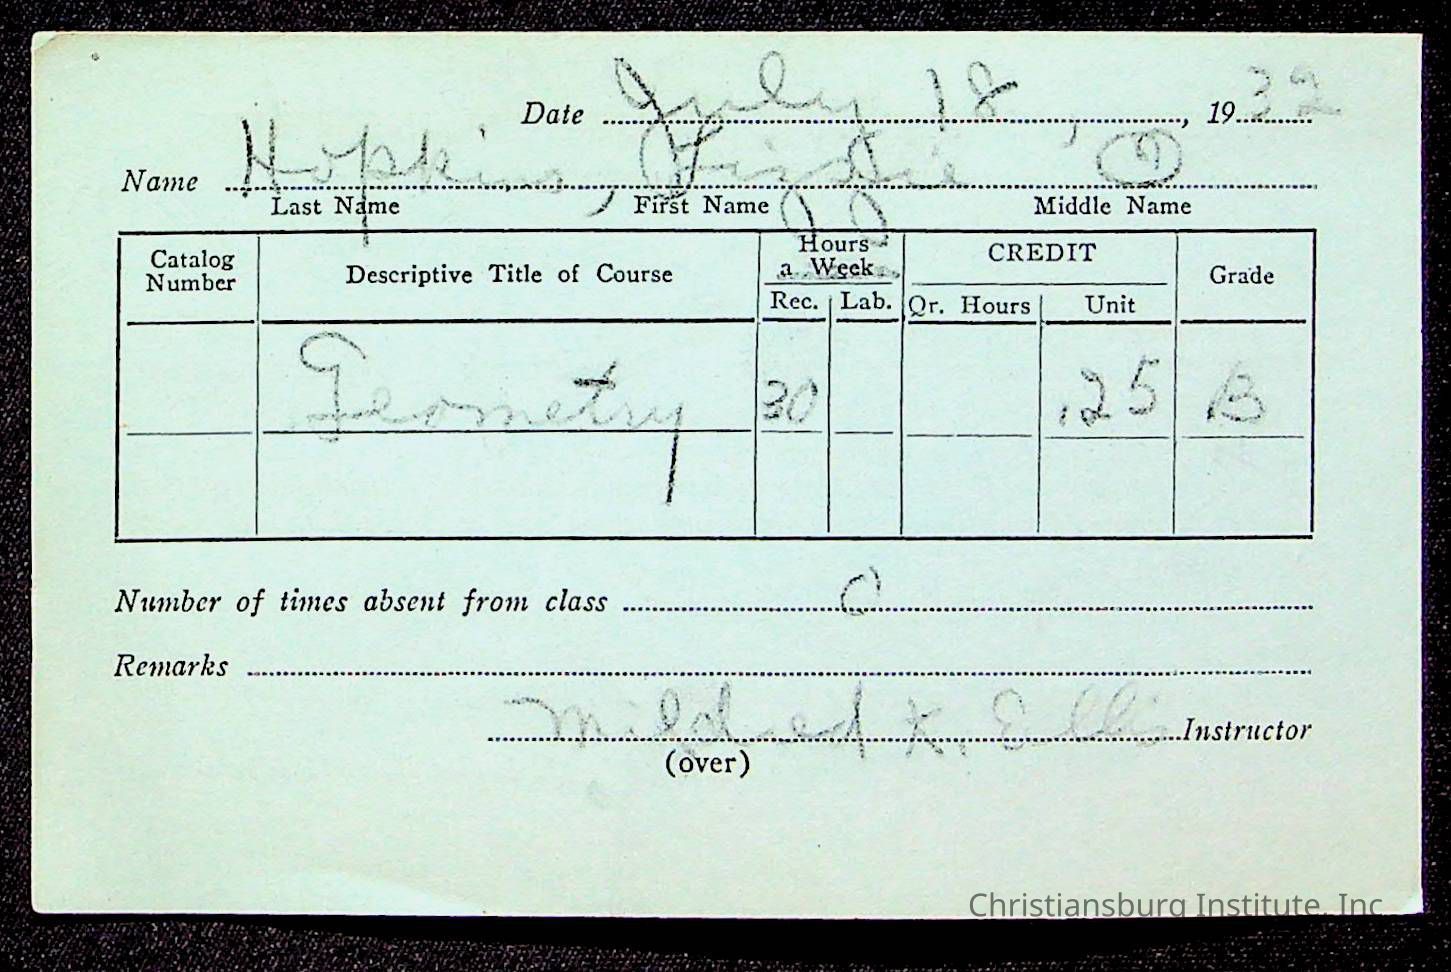 Date July 18, 1932
Name Hopkins,
Last Name First Name Middle Name
Catalog Number Descriptive Title of Course Hours a Week CREDIT Grade
Rec. Lab. Qr. Hours Unit
Geometry 30 .25 B
Number of times absent from class
Remarks
Mildred K. Ellis Instructor
(over)
Christiansburg Institute, Inc